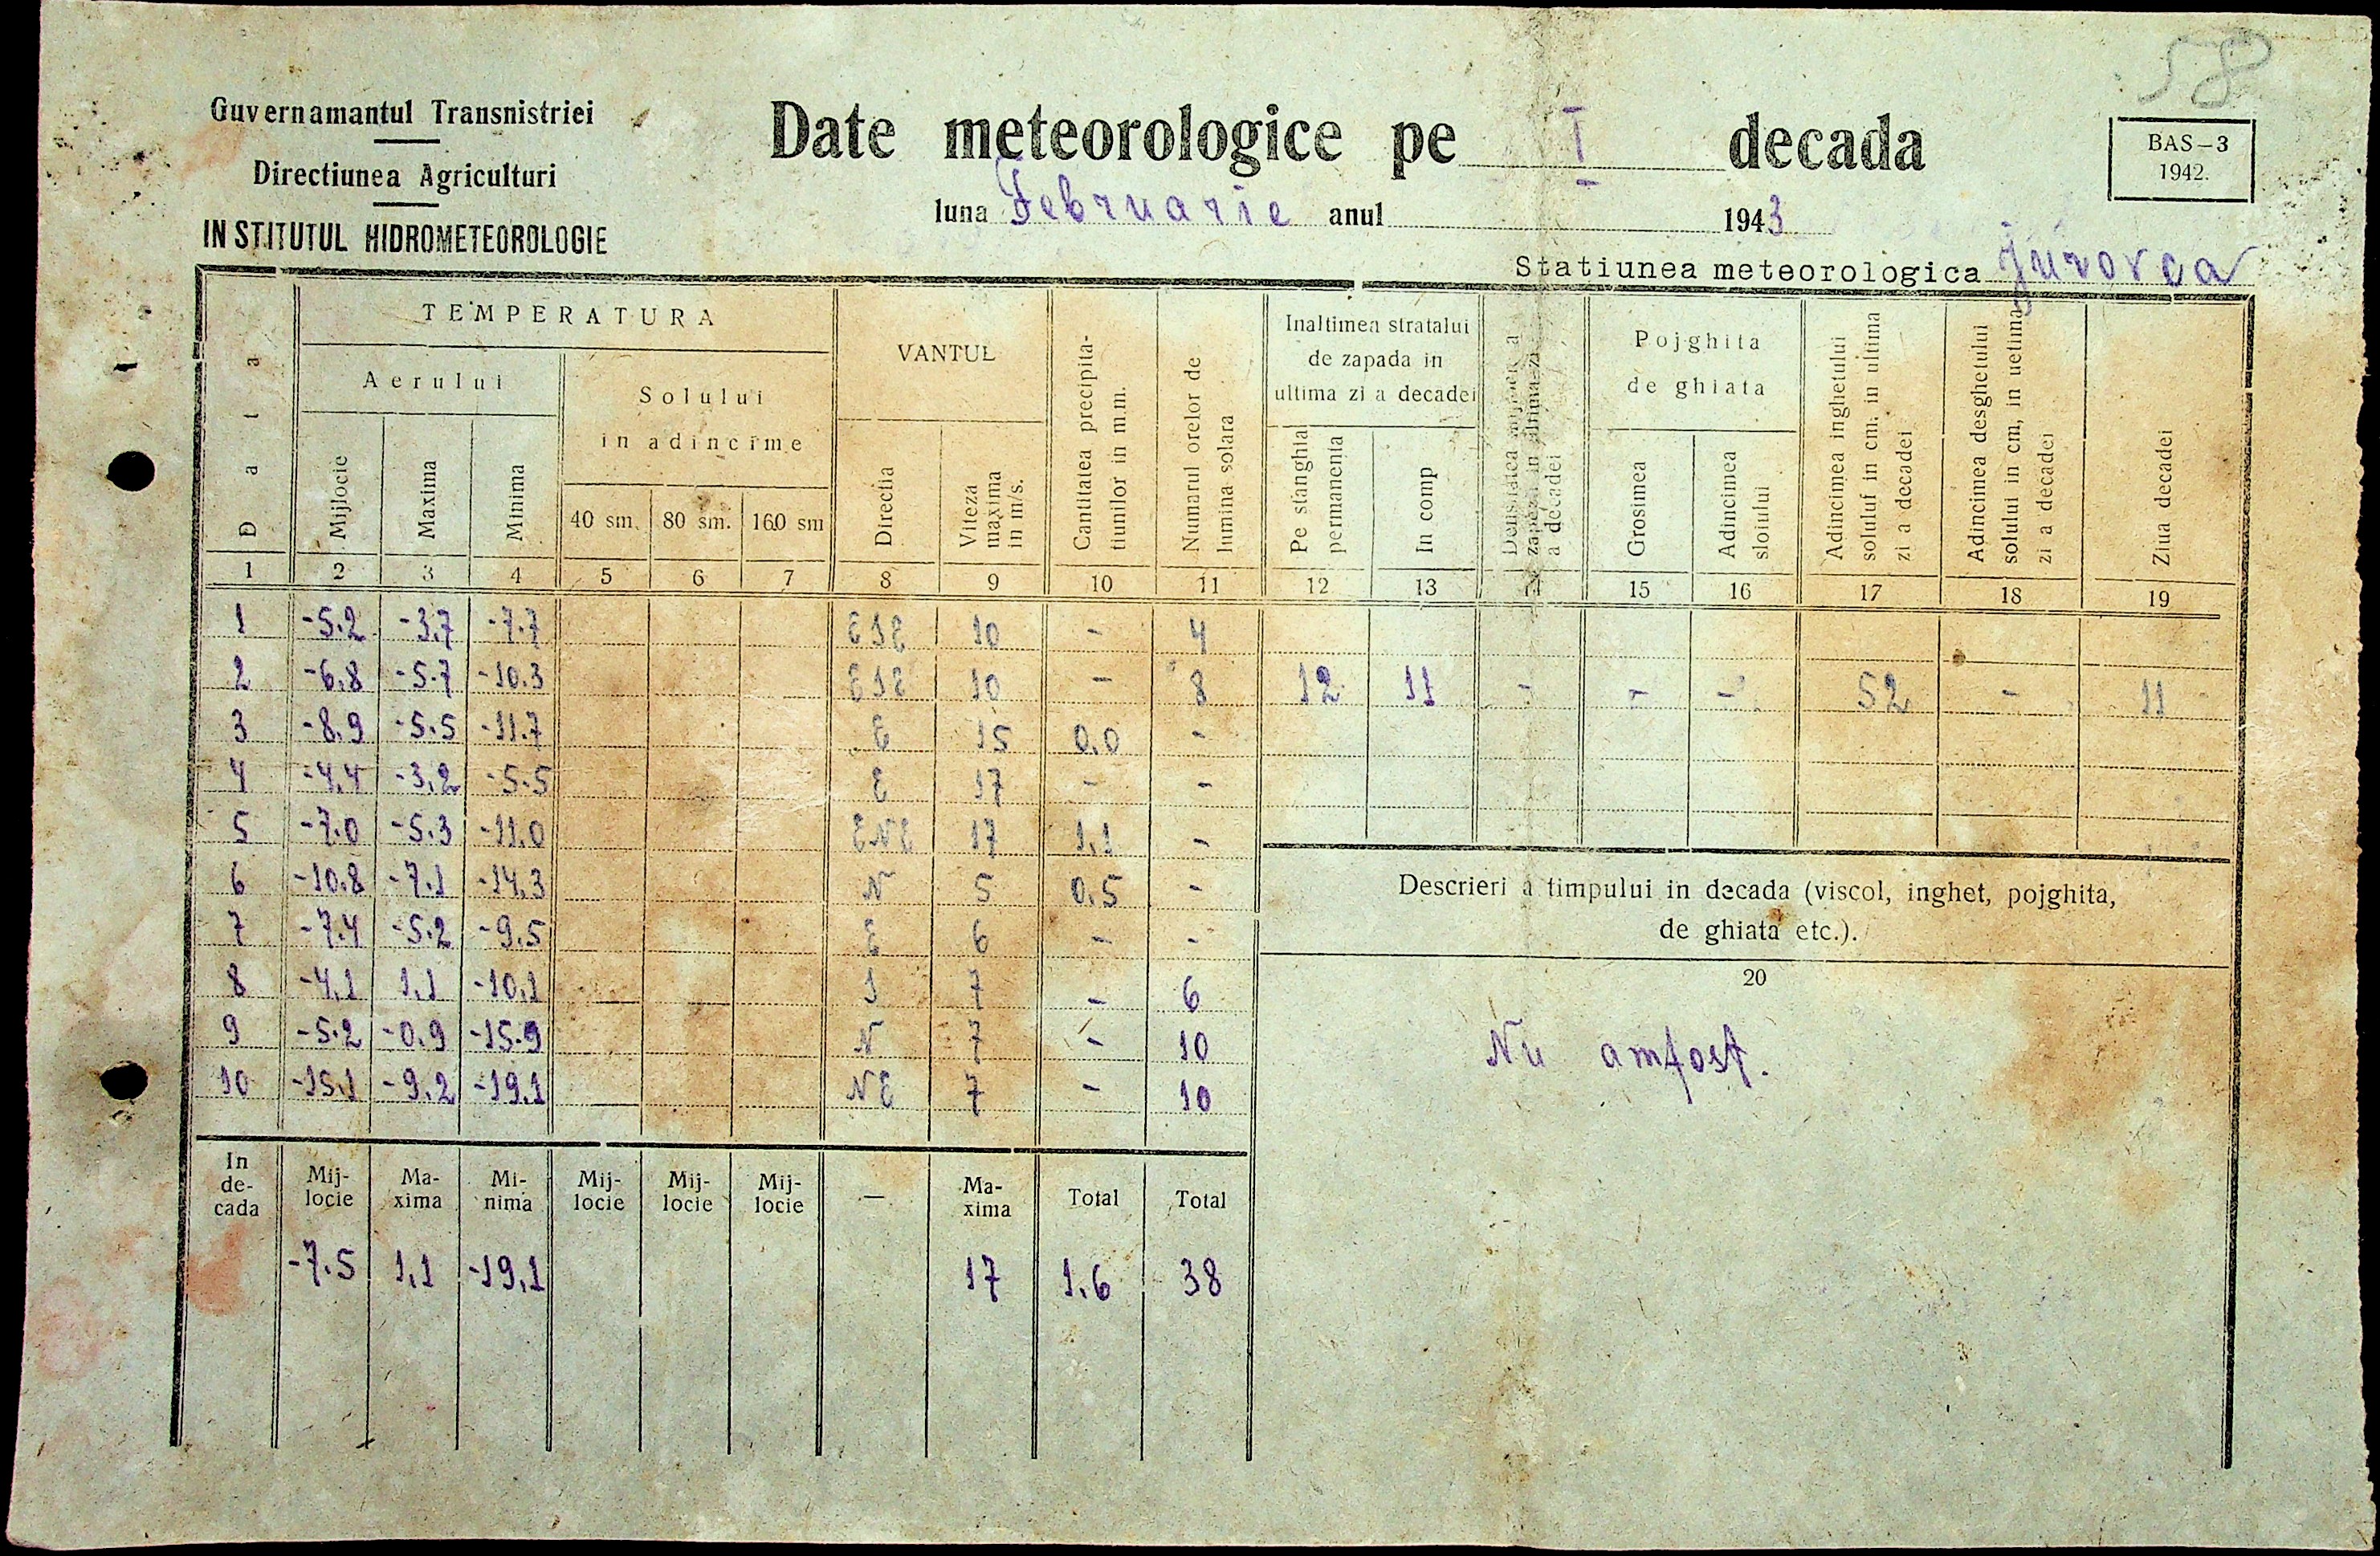 58
Guvernamantul Transnistriei
Directiunea Agriculturi
INSTITUTUL HIDROMETEOROLOGIE
Date meteorologice pe I decada
luna Februarie anul 1943
BAS—3
1942.
Statiunea meteorologica
Data
TEMPERATURA
Aerului
Mijlocie
Maxima
Minima
Solului
in adincime
40 sm. 80 sm. 160 sm
VANTUL
Directia
Viteza maxima in m/s.
Cantitatea precipita-
tiunilor in m.m.
Numarul orelor de
lumina solara
Inaltimea stratalui
de zapada in
ultima zi a decadei
Pe stanghia
permanenta
In comp
Densitatea mijocie a
zapezii in ultima zi
a decadei
Pojghita
de ghiata
Grosimea
Adincimea
sloiului
Adincimea inghetului
solului in cm. in ultima
zi a decadei
Adincimea desghetului
solului in cm, in uetima
zi a decadei
Ziua decadei
1 2 3 4 5 6 7 8 9 10 11 12 13 14 15 16 17 18 19
1 -5.2 -3.7 -7.7 ESE 10 - 4
2 -6.8 -5.7 -10.3 ESE 10 - 8 12 11 - - - 52 - 11
3 -8.9 -5.5 -11.7 E 15 0.0 -
4 -4.4 -3.2 -5.5 E 17 - -
5 -7.0 -5.3 -11.0 ENE 17 1.1 -
6 -10.8 -7.1 -14.3 N 5 0.5 -
7 -7.4 -5.2 -9.5 E 6 - -
8 -4.1 1.1 -10.1 S 7 - 6
9 -5.2 -0.9 -15.9 N 7 - 10
10 -15.1 -9.2 -19.1 NE 7 - 10
In
de-
cada
Mij-
locie
Ma-
xima
Mi-
nima
Mij-
locie
Mij-
locie
Mij-
locie
—
Ma-
xima
Total
Total
-7.5 1.1 -19.1 17 1.6 38
Descrieri a timpului in decada (viscol, inghet, pojghita,
de ghiata etc.).
20
Nu amfost.